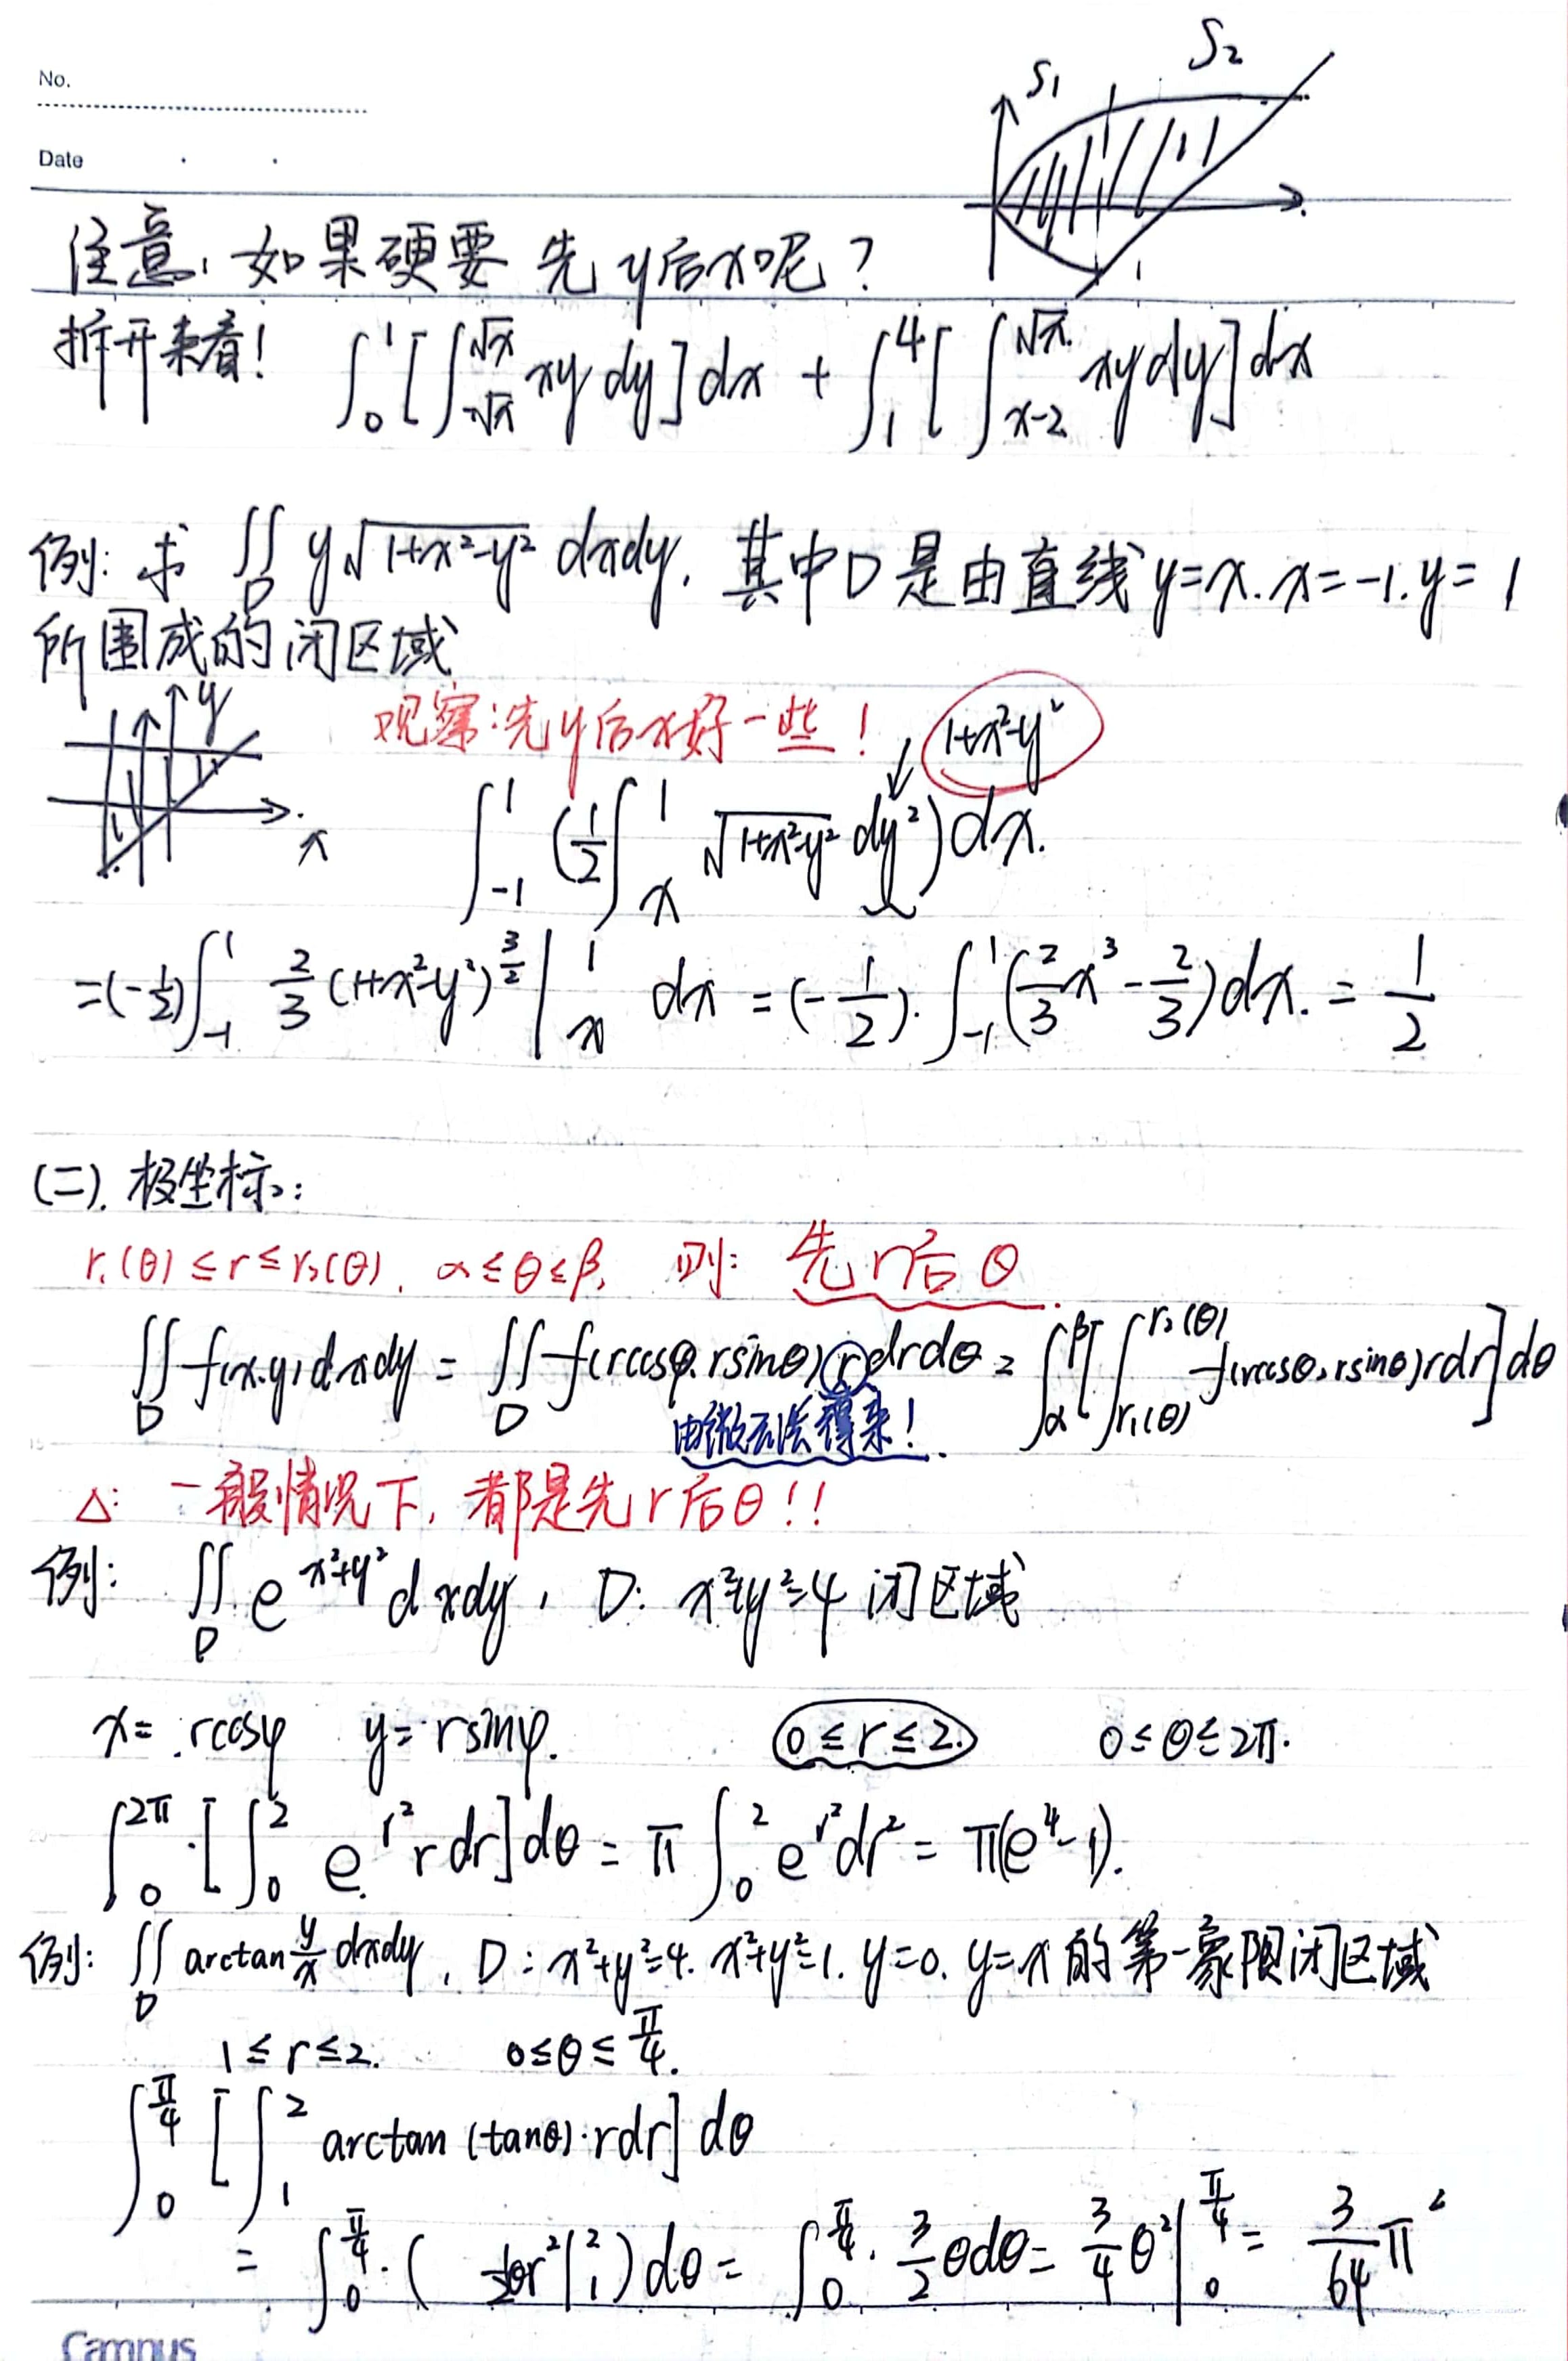 No.
Date
S₁ S₂
1
注意, 如果硬要 先y后x呢?
拆开来看! ∫₀¹[∫_{-√x}^{√x} xy dy]dx + ∫₁⁴[∫_{x-2}^{√x} xydy]dx
例: 求 ∬_D y√(1+x²-y²) dxdy, 其中D是由直线y=x. x=-1. y=1
所围成的闭区域
y
x
观察:先y后x好一些!
1+x²-y²
∫_{-1}^{1} (½∫_x^1 √(1+x²-y²) dy²)dx.
=(-½)∫_{-1}^{1} ⅔(1+x²-y²)^{3/2}|_x^1 dx = (-½)·∫_{-1}^{1}(⅔x³-⅔)dx. = ½
(二). 极坐标:
r₁(θ)≤r≤r₂(θ). α≤θ≤β, 则: 先r后θ
∬_D f(x,y)dxdy = ∬_D f(rcosφ, rsinθ) r drdθ = ∫_α^β[∫_{r₁(θ)}^{r₂(θ)} f(rcosθ, rsinθ)rdr]dθ
由微元法得来!
△: 一般情况下, 都是先r后θ!!
例: ∬_D e^{x²+y²} dxdy, D: x²+y²=4 闭区域
x= rcosφ y= rsinφ. 0≤r≤2. 0≤θ≤2π.
∫₀^{2π}·[∫₀² e^{r²} r dr]dθ = π∫₀² e^{r²}dr² = π(e⁴-1).
例: ∬_D arctan y/x dxdy, D: x²+y²=4. x²+y²=1. y=0. y=x 的第一象限闭区域
1≤r≤2. 0≤θ≤π/4.
∫₀^{π/4}[∫₁² arctan (tanθ)·rdr]dθ
= ∫₀^{π/4}·(½θr²|₁²)dθ = ∫₀^{π/4}·3/2 θdθ = ¾θ²|₀^{π/4} = 3/64 π²
Campus